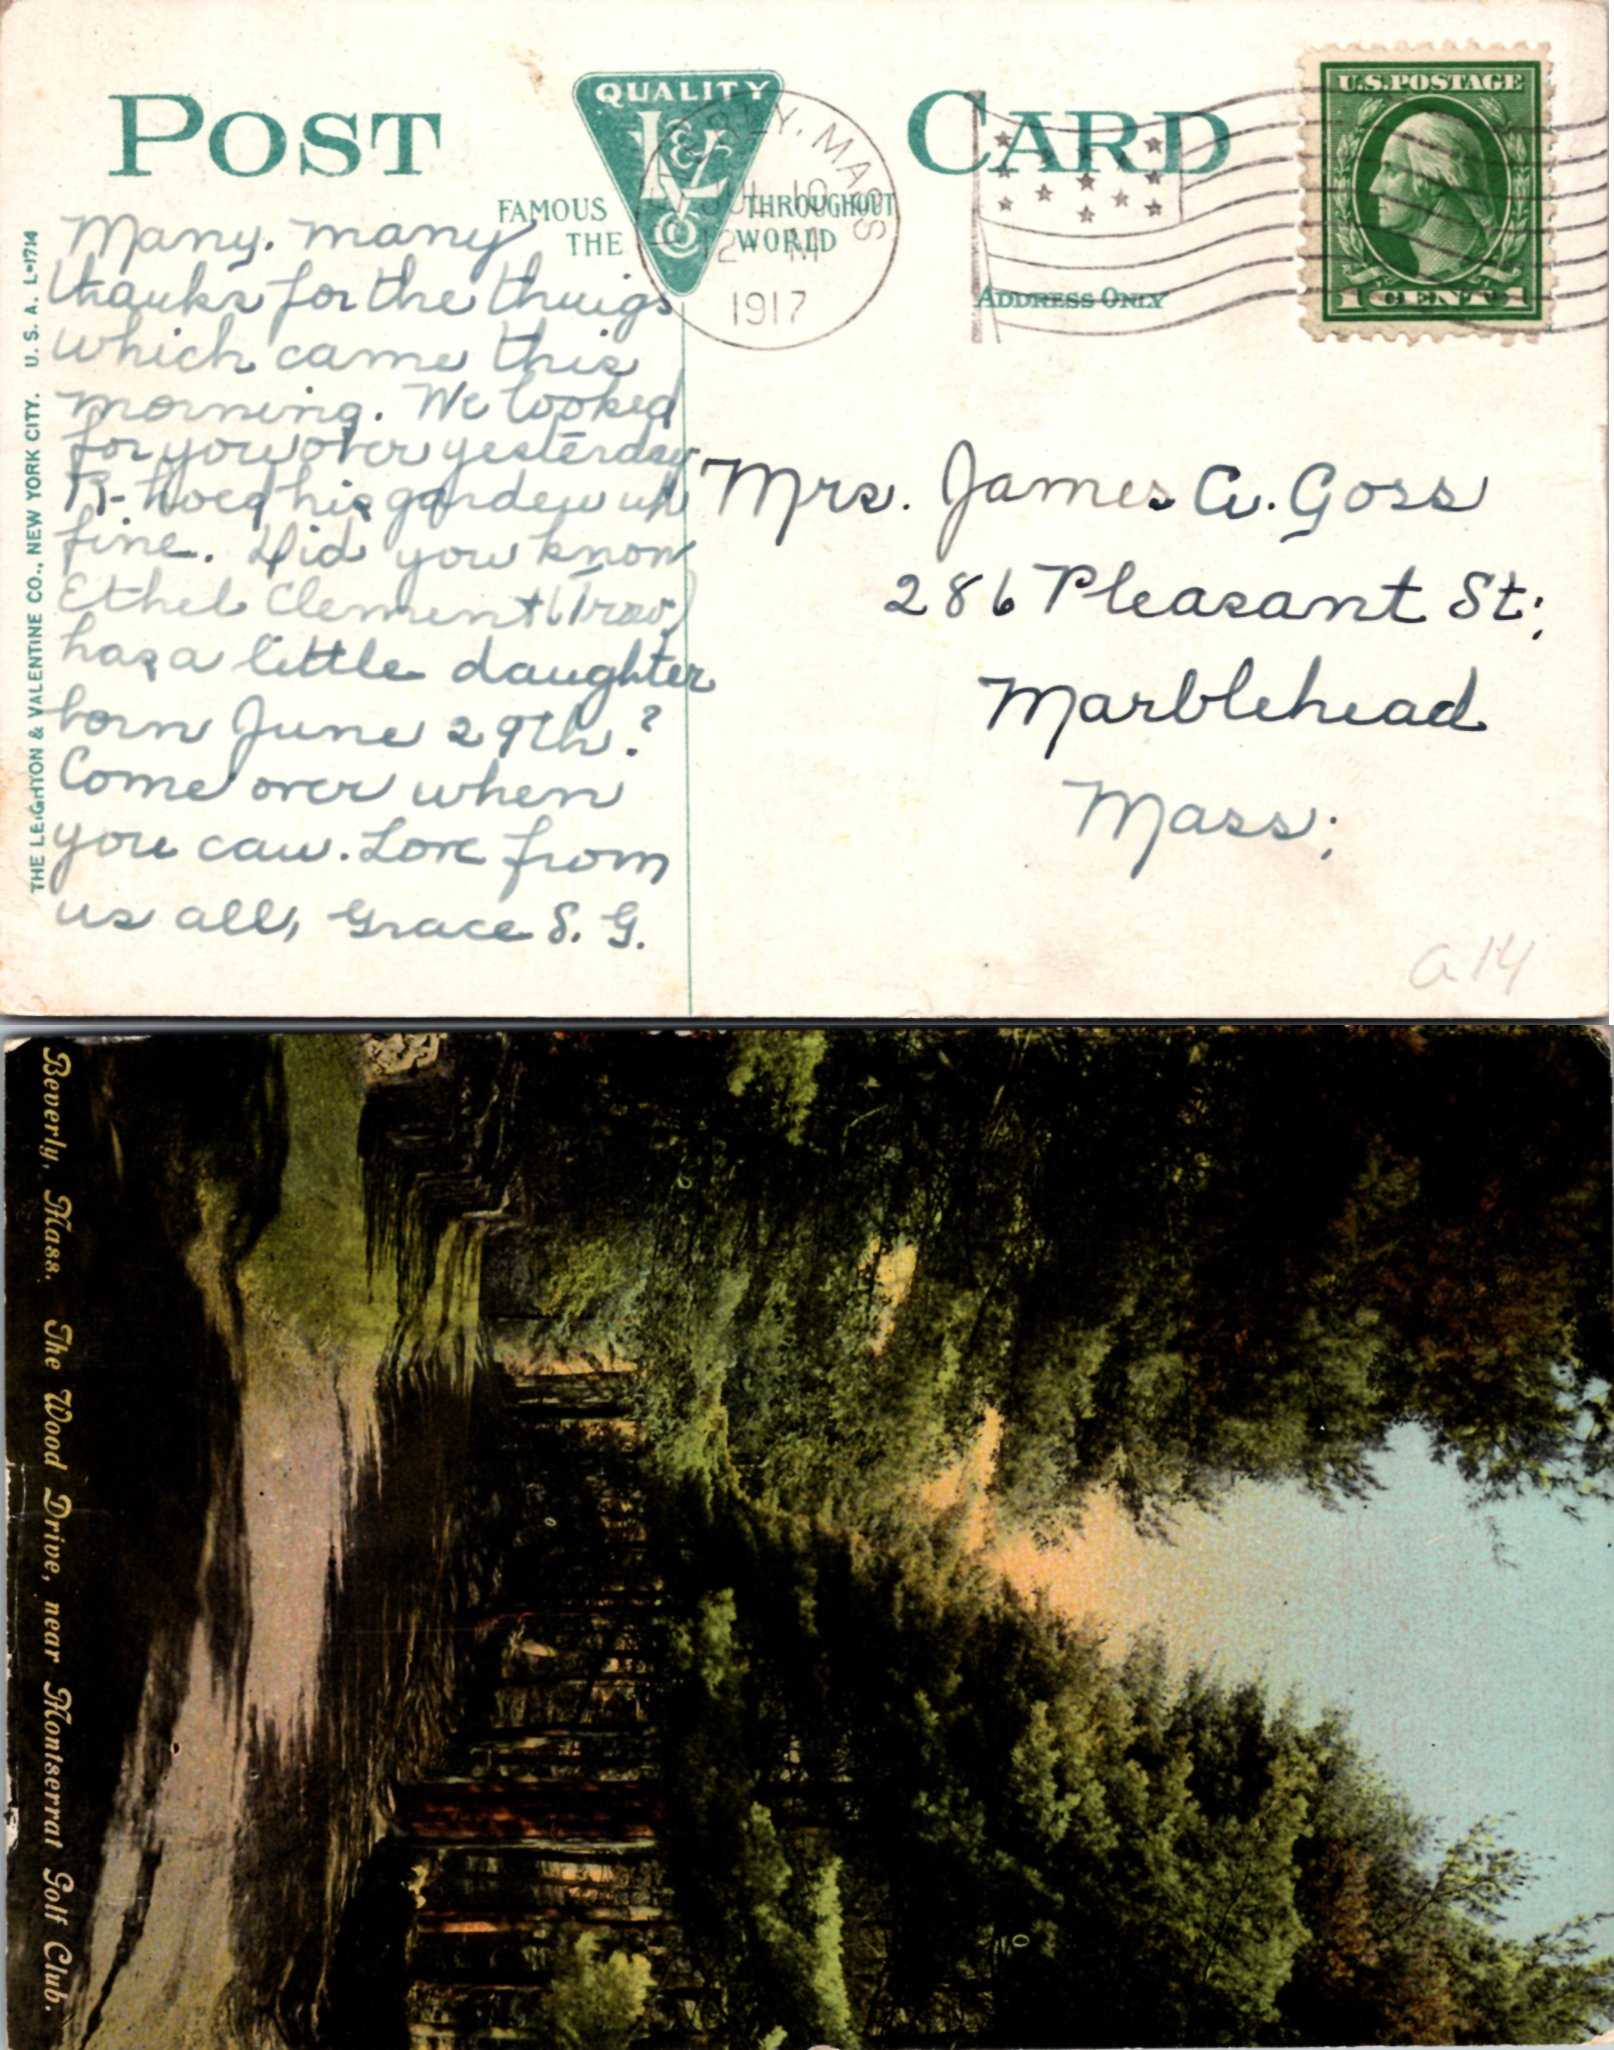 POST CARD
QUALITY
L&V
CO
FAMOUS THROUGHOUT
THE WORLD
BEVERLY, MASS
JUL 10
12 M
1917
U.S. POSTAGE
1 CENT 1
ADDRESS ONLY
THE LEIGHTON & VALENTINE CO., NEW YORK CITY. U. S. A. L-1714
Many, many
thanks for the things
which came this
morning. We looked
for you over yesterday
R- hoed his garden up
fine. Did you know
Ethel Clement
has a little daughter
born June 29th?
Come over when
you can. Love from
us all, Grace S. G.
Mrs. James A. Goss
286 Pleasant St;
Marblehead
Mass;
a14
Beverly, Mass. The Wood Drive, near Montserrat Golf Club.